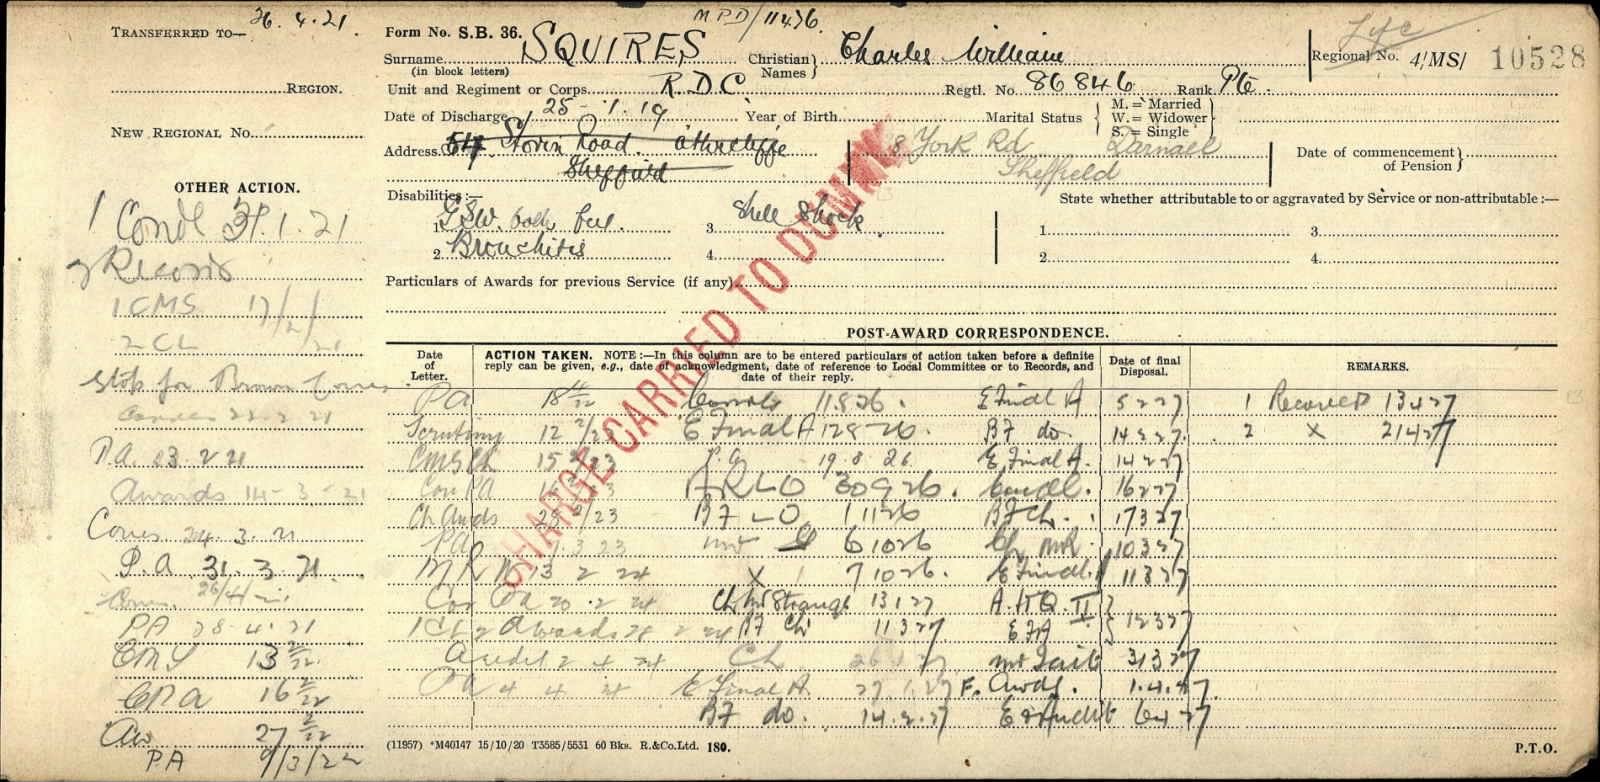 TRANSFERRED TO— 26.4.21.
REGION.
NEW REGIONAL No.
OTHER ACTION.
1 Condl 31.1.21
2 Records
1 CMS 17/2/21
2 CL
Stop for
22.2.21
P.A. 23.2.21
Awards 14-3-21
Corres 24.3.21
P.A 31.3.21
26/4/21
PA 28.4.21
CMS 13 2/22
16 2/22
Aw 27 2/22
PA 9/3/22
MPD/11476
Form No. S.B. 36.
Surname SQUIRES
(in block letters)
Christian Names } Charles William
Life
Regional No. 4/MS/ 10528
Unit and Regiment or Corps R.D.C. Regtl. No. 86846 Rank Pte.
Date of Discharge 25-1.19 Year of Birth Marital Status { M. = Married
W. = Widower
S. = Single }
Address. 54 Stovin Road. Attercliffe
Sheffield
8 York Rd Darnall
Sheffield
Date of commencement of Pension }
Disabilities:—
1. GSW. both feet. 3. Shell Shock.
2. Bronchitis 4.
State whether attributable to or aggravated by Service or non-attributable:—
1. 3.
2. 4.
Particulars of Awards for previous Service (if any)
CHARGE CARRIED TO DUMMY
POST-AWARD CORRESPONDENCE.
Date of Letter.
ACTION TAKEN. NOTE:—In this column are to be entered particulars of action taken before a definite reply can be given, e.g., date of acknowledgment, date of reference to Local Committee or to Records, and date of their reply.
Date of final Disposal.
REMARKS.
PA 18 4/22 11.8.26. E Final A 5227 1 Recovered 13427
Scrutiny 12 2/23 E Final A 12826. BF do. 14227. 2 X 21427
15 2/23 P.A 19.8.26. E Final A. 14227
Con PA ARLO 30926. 16227
Ch Awds 23 BFLO 11126 BF Ch. 17327
PA 3 23 61026 Ch MR. 10327
MRM 3 2 24 X 71026. E Final A 11327
20.2.24 Ch Mr Strange 13127 A.HQ. II } 12327
Awards 28 2 24 BF Ch 11327 EFA
Audit 2 4 24 Ch 26 1 27 Mr Tait 31327
PA 4 4 24 E Final A. 27.1.27 F. Awds. 1.4.27
BF do. 14.2.27 E Audit 6427
(11957) *M40147 15/10/20 T3585/5531 60 Bks. R.&Co.Ltd. 180.
P.T.O.